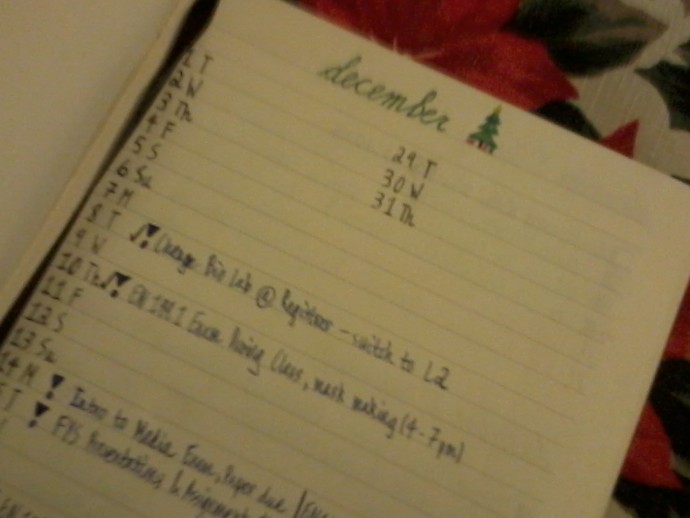 december
1 T
2 W
3 Th
4 F
5 S
6 Su
7 M
8 T
9 W √! Change Bio Lab @ Registrar - switch to L2
10 Th √! EN 1991 Exam During Class, mask making (4-7pm)
11 F
12 S
13 Su
14 M ! Intro to Media Exam, Paper due
T ! FYS Presentations &
29 T
30 W
31 Th